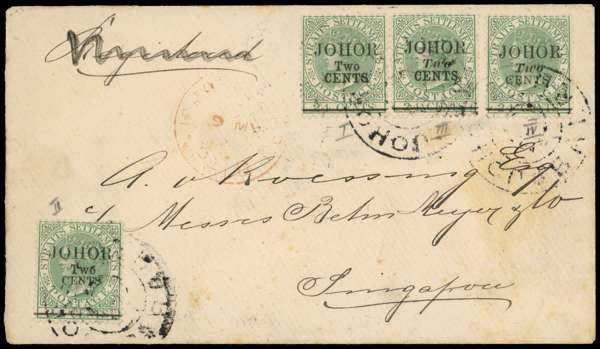 Registered
STRAITS SETTLEMENTS STRAITS SETTLEMENTS STRAITS SETTLEMENTS
JOHOR JOHOR JOHOR
Two Two Two
CENTS CENTS CENTS
I III IV
Esq
A. v Roessing
c/ Messrs Behn Meyer & Co
Singapore
II
STRAITS SETTLEMENTS
JOHOR
Two
CENTS